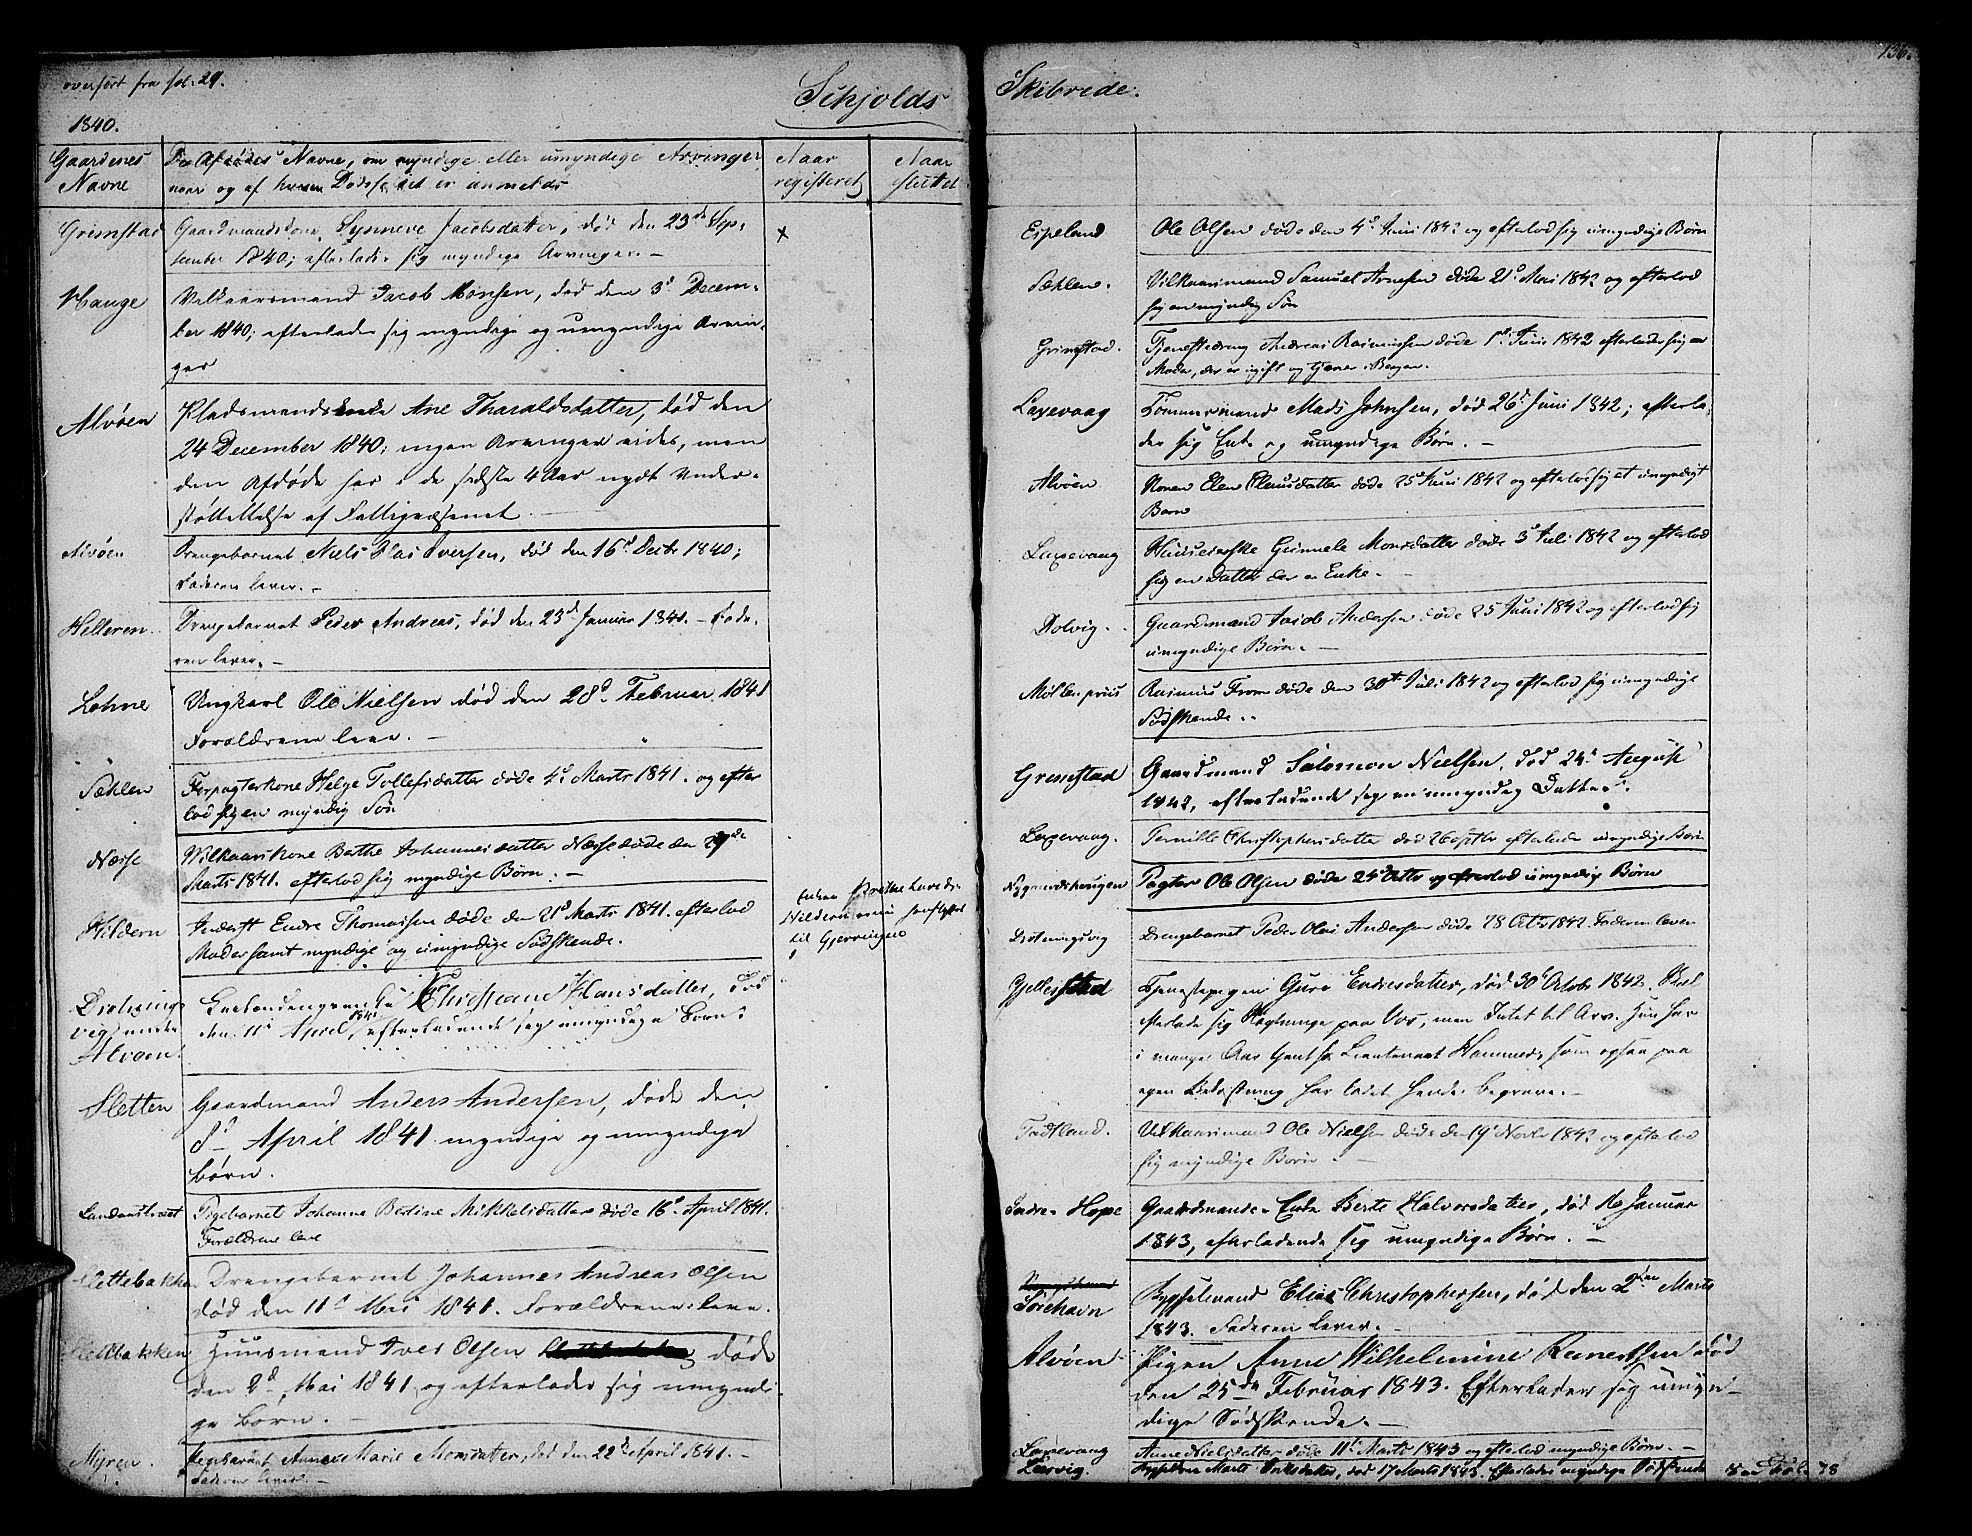 overført fra fol. 29.
Schjolds
1840.
Gaardenes Navne
De Afdødes Navne, om myndige eller umyndige Arvinger
naar og af hvem Dødsfaldet er anmeldt
Naar registeret
Naar sluttet
Grimstad
Gaardmandskone Synneve Jacobsdatter, død den 23de Sep-
tember 1840; efterlader sig myndige Arvinger. –
x
Hauge
Vilkaarsmand Jacob Monsen, død den 3d Decem-
ber 1840; efterlader sig myndige og umyndige Arvin-
ger
Alvøen
Pladsmands Ane Tharaldsdatter, død den
24 December 1840; ingen Arvinger vides, men
den Afdøde har i de sidste 4 Aar nydt Under-
støttettelse af Fattigvæsenet.
Alvøen
Drengebarnet Niels Iversen, død den 16d Decbr 1840;
Faderen lever. –
Helleren
Drengebarnet Peder Andreas, død den 23d Januar 1841. – Fade-
ren lever. –
Lohne
Ungkarl Ole Nielsen død den 28d Februar 1841
Forældrene leve. –
Sæhlen
Forpagterkone Helge Tollefsdatter døde 4d Marts 1841. og efter
lod sig en myndig Søn
Næsse
Vilkaarskone Berthe Johannesdatter Næsse døde den 29de
Marts 1841. efterlod sig myndige Børn. –
Hildern
Inderst Endre Thomassen døde den 21d Marts 1841. efterlod
Moder samt myndige og umyndige Sødskende.
Enken
Hildern
til Gjerningen
Drotningsvig under Alvøen.
Christiane Hansdatter, død
den 11t April 1841 efterladende sig umyndige Børn.
Sletten
Gaardmand Anders Andersen, døde den
8d April 1841. myndige og umyndige
Børn.
Landaastræet
Pigebarnet Johanne Bertine Mikkelsdatter døde 16d April 1841.
Forældrene leve
Slettebakken
Drengebarnet Johannes Andreas Olsen
død den 11t Mai 1841. Forældrene leve.
Slettebakken
Huusmand Iver Olsen døde
den 2d Mai 1841, og efterlader sig umyndi-
ge Børn. –
Myren.
Pigebarnet Anne Marie Monsdatter, død den 22de April 1841. –
Faderen lever. –
136.
Skibrede.
Espeland
Ole Olsen døde den 4d Juni 1842 og efterlod sig umyndige Børn
Sæhlen.
Vilkaarsmand Samuel Arnesen døde 21d Mai 1842 og efterlod
sig en myndig Søn
Grimstad.
Tjenestedreng Andreas Rasmussen døde 1ste Juni 1842 efterlader sig en
Moder, der er ugift og tjener i Bergen.
Laxevaag
Tømmermand Mads Johnsen, død 26d Juni 1842; efterla-
der sig Enke og umyndige Børn. –
Alvøen
Konen Elen Clausdatter døde 25 Juni 1842 og efterlod sig et umyndigt
Barn
Laxevaag
Gunnele Monsdatter døde 3d Juli 1842 og efterlod
sig en Datter der er Enke. –
Dolvig.
Gaardmand Jacob Andersen døde 25 Juni 1842 og efterlod sig
umyndige Børn. –
Møllenpriis
Rasmus From døde den 30te Juli 1842 og efterlod sig umyndige
Sødskende. –
Grimstad
Gaardmand Salomon Nielsen, død 24d August
1842, efterladende sig en umyndig Datter.
Laxevaag.
Pernille Christophersdatter død 26 Septbr efterlod umyndige Børn
Nygaardshaugen
Pagter Ole Olsen døde 24d Octbr og efterlod umyndige Børn
Drotningsvig
Drengebarnet Peder Olai Andersen døde 28 Octbr 1842. Faderen lever
Gjellestad
Tjenestepigen Guro Endresdatter, død 30d Octobr 1842. Skal
efterlade sig Slegtninge paa Vos, men Intet til Arv. Hun har
i mange Aar tjent hos Lieutenant Hammer, som ogsaa paa
egen Bekostning har ladet hende begrave. –
Tvedtland.
Vilkaarsmand Ole Nielsen døde den 19d Novbr 1842 og efterlod
sig myndige Børn. –
Indre- Hope
Gaardmands- Enke Berte Halvorsdatter, død 16 Januar
1843, efterladende sig umyndige Børn. –
Sørehavn
Bygselmand Elias Christophersen, død den 2den Marts
1843. Faderen lever. –
Alvøen
Pigen Anne Wilhelmine Reinertsen død
den 25de Februar 1843. Efterlader sig umyn-
dige Sødskende. –
Laxevaag
Anne Nielsdatter døde 11te Marts 1843 og efterlod myndige Børn. –
Marte Eriksdatter, død 17 Marts 1843. Efterlader myndige Sødskende
78